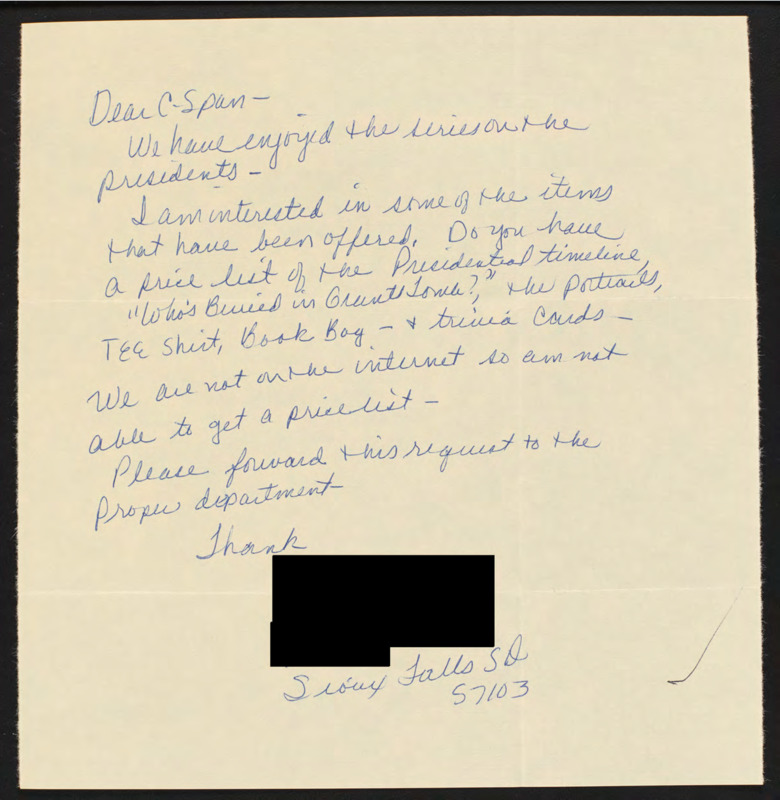 Dear C-Span—
We have enjoyed the series on the
presidents—
I am interested in some of the items
that have been offered. Do you have
a price list of the Presidential timeline,
"Who's Buried in Grant's Tomb?," the portraits,
TEE Shirt, Book Bag — & trivia cards —
We are not on the internet so am not
able to get a price list —
Please forward this request to the
proper department—
Thank
Sioux Falls SD
57103